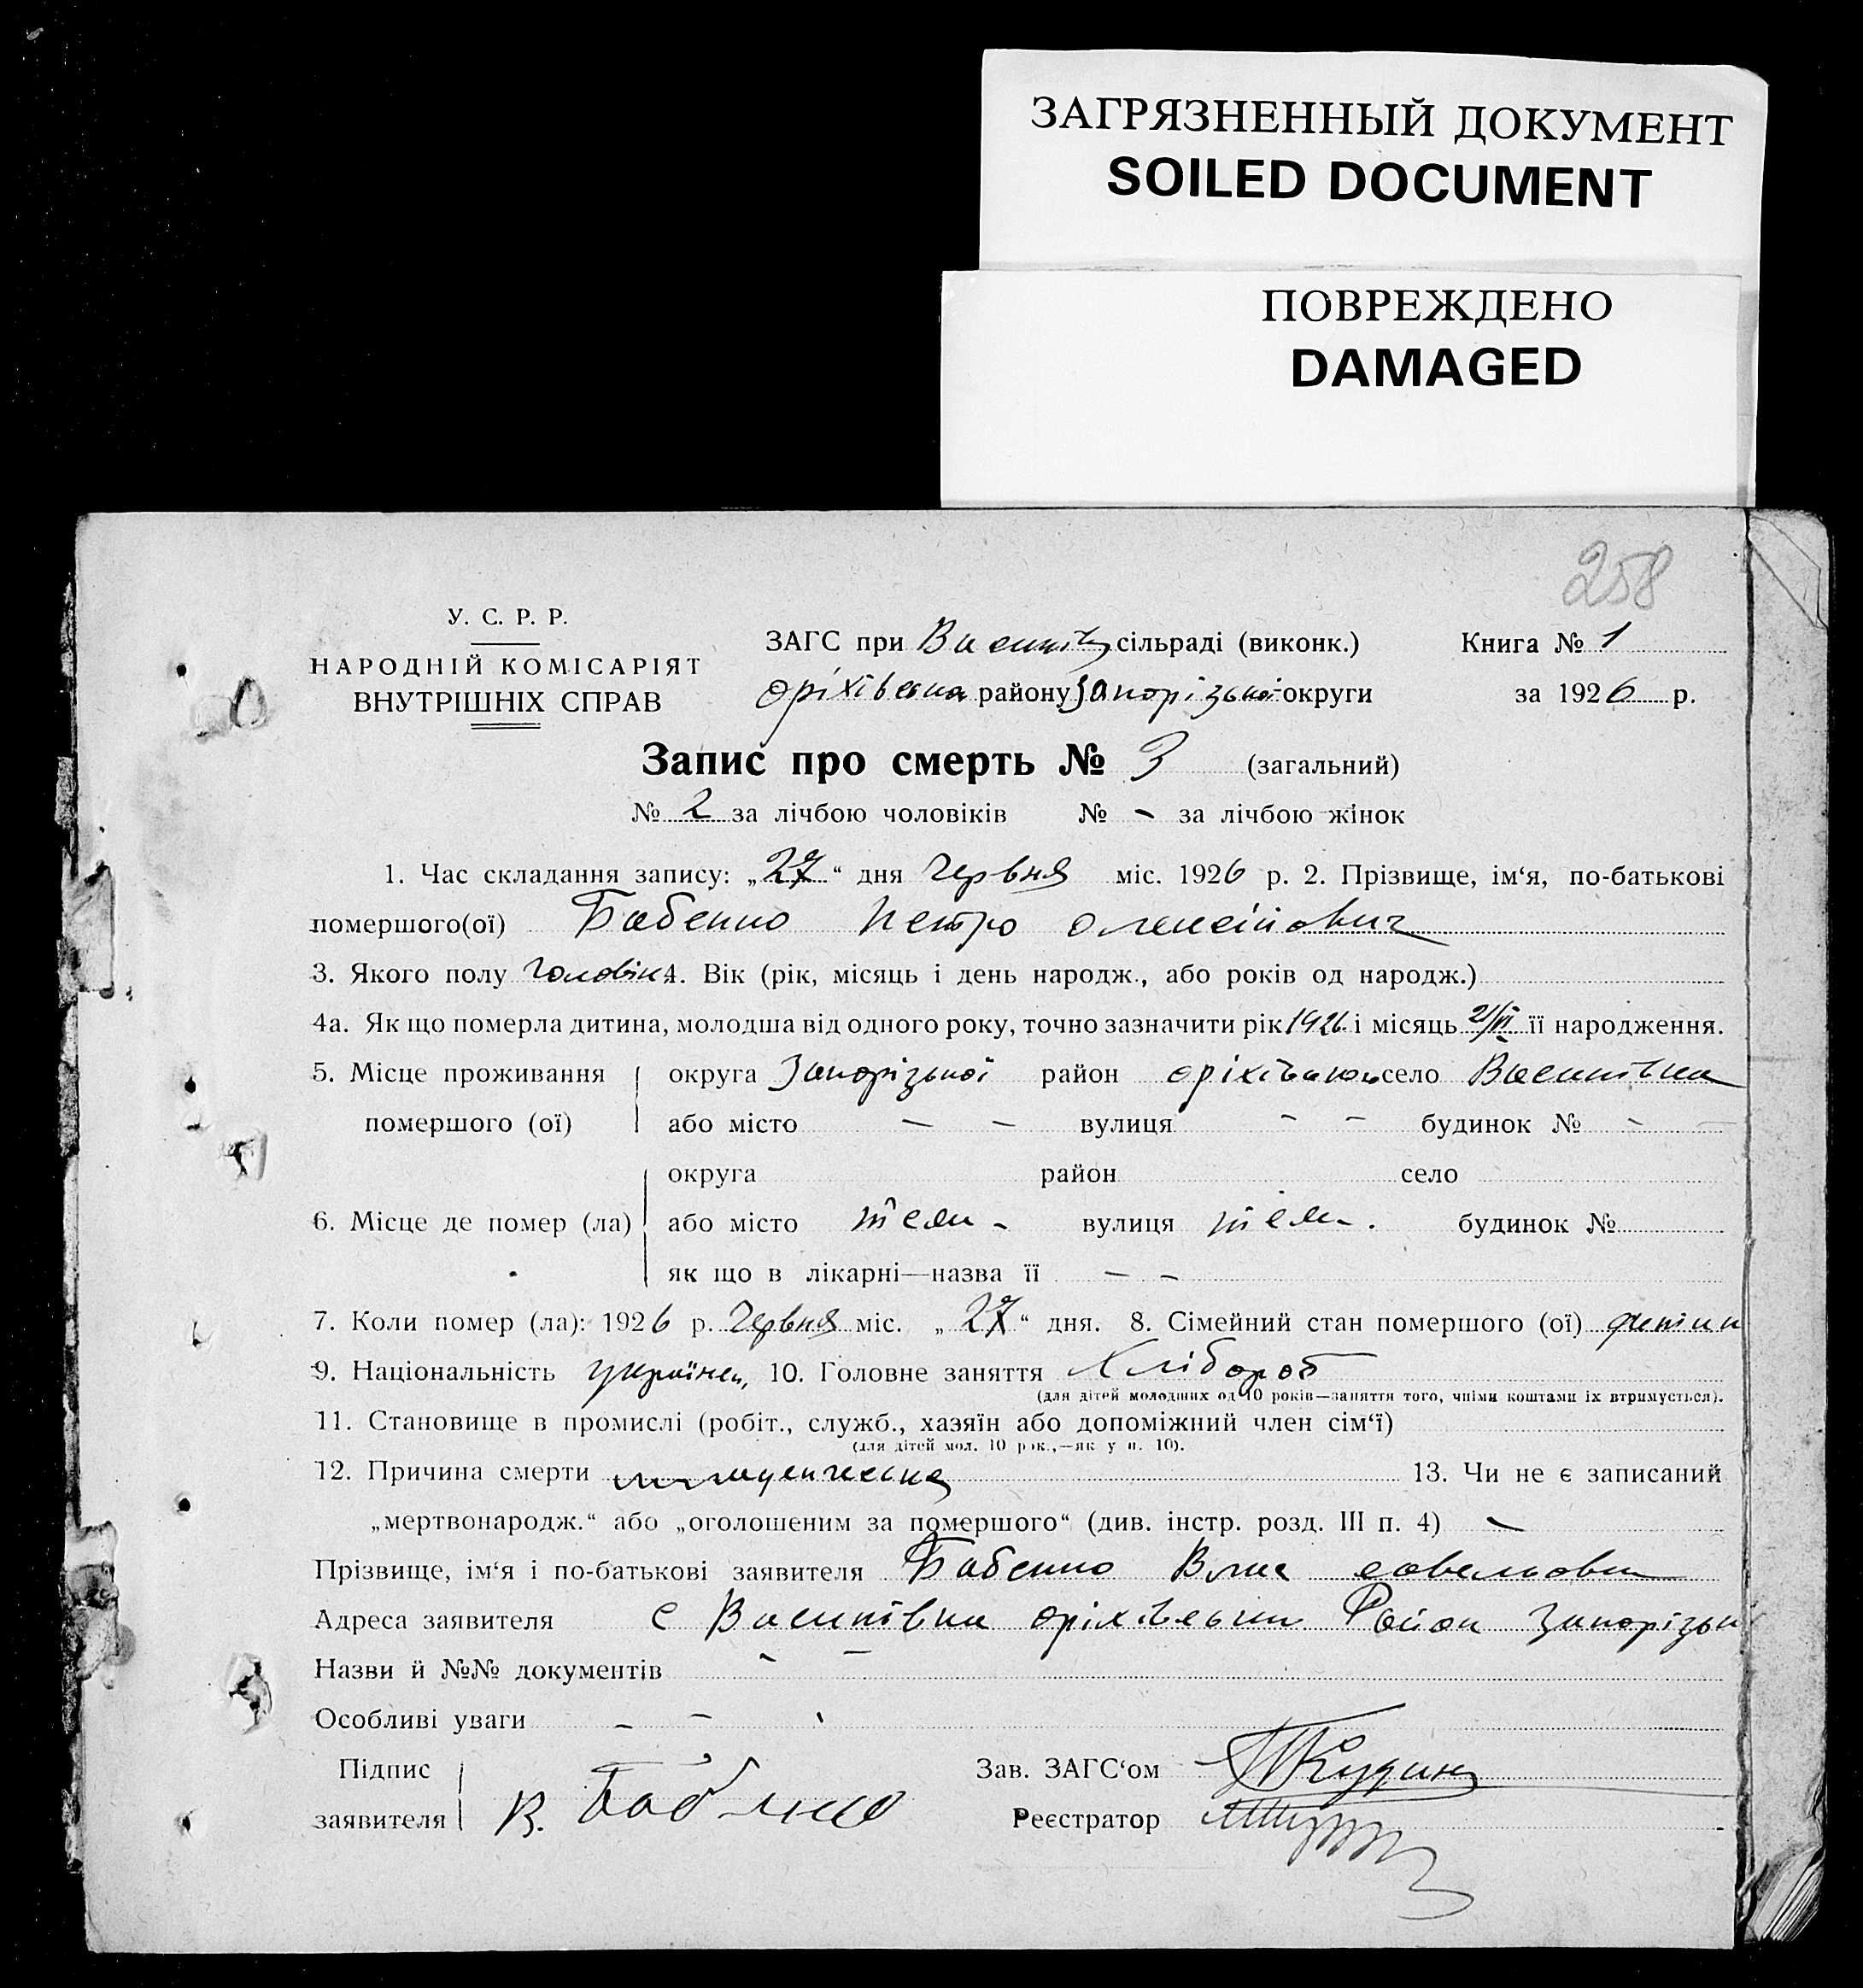 ЗАГРЯЗНЕННЫЙ ДОКУМЕНТ
SOILED DOCUMENT
ПОВРЕЖДЕНО
DAMAGED
258
У. С. Р. Р.
НАРОДНІЙ КОМІСАРІЯТ
ВНУТРІШНІХ СПРАВ
ЗАГС при сільраді (виконк.) Книга № 1
району Запорізької округи за 1926 р.
Запис про смерть № 3 (загальний)
№ 2 за лічбою чоловіків № - за лічбою жінок
1. Час складання запису: „27“ дня Червня міс. 1926 р. 2. Прізвище, ім‘я, по-батькові
помершого(ої) Бабенко Петро Олексійович
3. Якого полу чоловік 4. Вік (рік, місяць і день народж., або років од народж.)
4а. Як що померла дитина, молодша від одного року, точно зазначити рік 1926 і місяць 2/VI її народження.
5. Місце проживання округа Запорізької район село
помершого (ої) або місто — — вулиця - - будинок № - -
округа район село
6. Місце де помер (ла) або місто вулиця будинок №
як що в лікарні—назва її — —
7. Коли помер (ла): 1926 р. Червня міс. „27“ дня. 8. Сімейний стан помершого (ої)
9. Національність українец 10. Головне заняття Хлібороб
(для дітей молодших од 10 років—заняття того, чиїми коштами їх втримується).
11. Становище в промислі (робіт., служб., хазяїн або допоміжний член сім‘ї)
(для дітей мол. 10 рок.,—як у п. 10).
12. Причина смерти 13. Чи не є записаний
„мертвонародж.“ або „оголошеним за помершого“ (див. інстр. розд. III п. 4) -
Прізвище, ім‘я і по-батькові заявителя Бабенко
Адреса заявителя с Район
Назви й №№ документів - -
Особливі уваги - -
Підпис Зав. ЗАГС‘ом
заявителя В. Бабенко Реєстратор